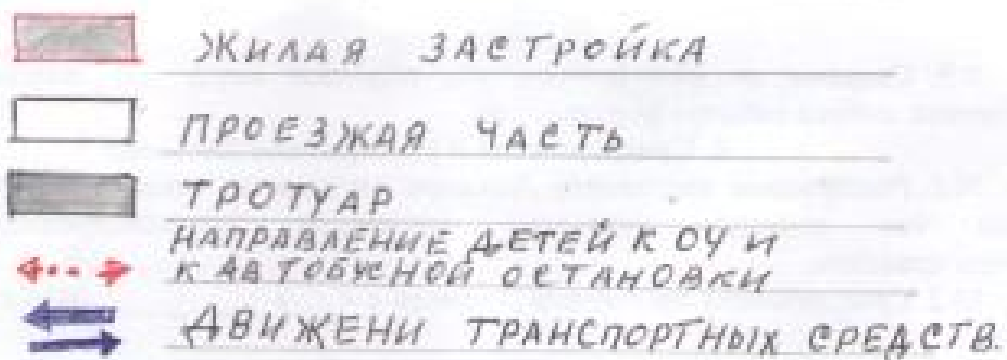 ЖИЛАЯ ЗАСТРОЙКА
ПРОЕЗЖАЯ ЧАСТЬ
ТРОТУАР
НАПРАВЛЕНИЕ ДЕТЕЙ К ОУ И
К АВТОБУСНОЙ ОСТАНОВКИ
ДВИЖЕНИ ТРАНСПОРТНЫХ СРЕДСТВ.